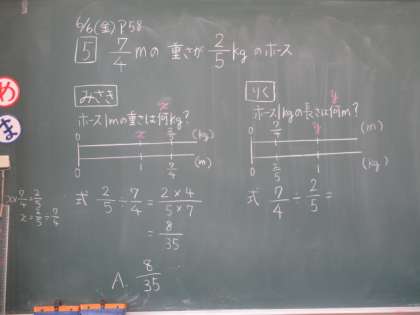 6/6(金)P58
5 7/4 mの重さが 2/5 kg のホース
みさき
ホース1mの重さは何kg?
x
0 x 2/5 (kg)
0 1 7/4 (m)
式 2/5 ÷ 7/4 = 2×4/5×7
= 8/35
A. 8/35
りく
y
ホース1kgの長さは何m?
0 7/4 y (m)
0 2/5 1 (kg)
式 7/4 ÷ 2/5 =
x × 7/4 = 2/5
x = 2/5 ÷ 7/4
め
ま